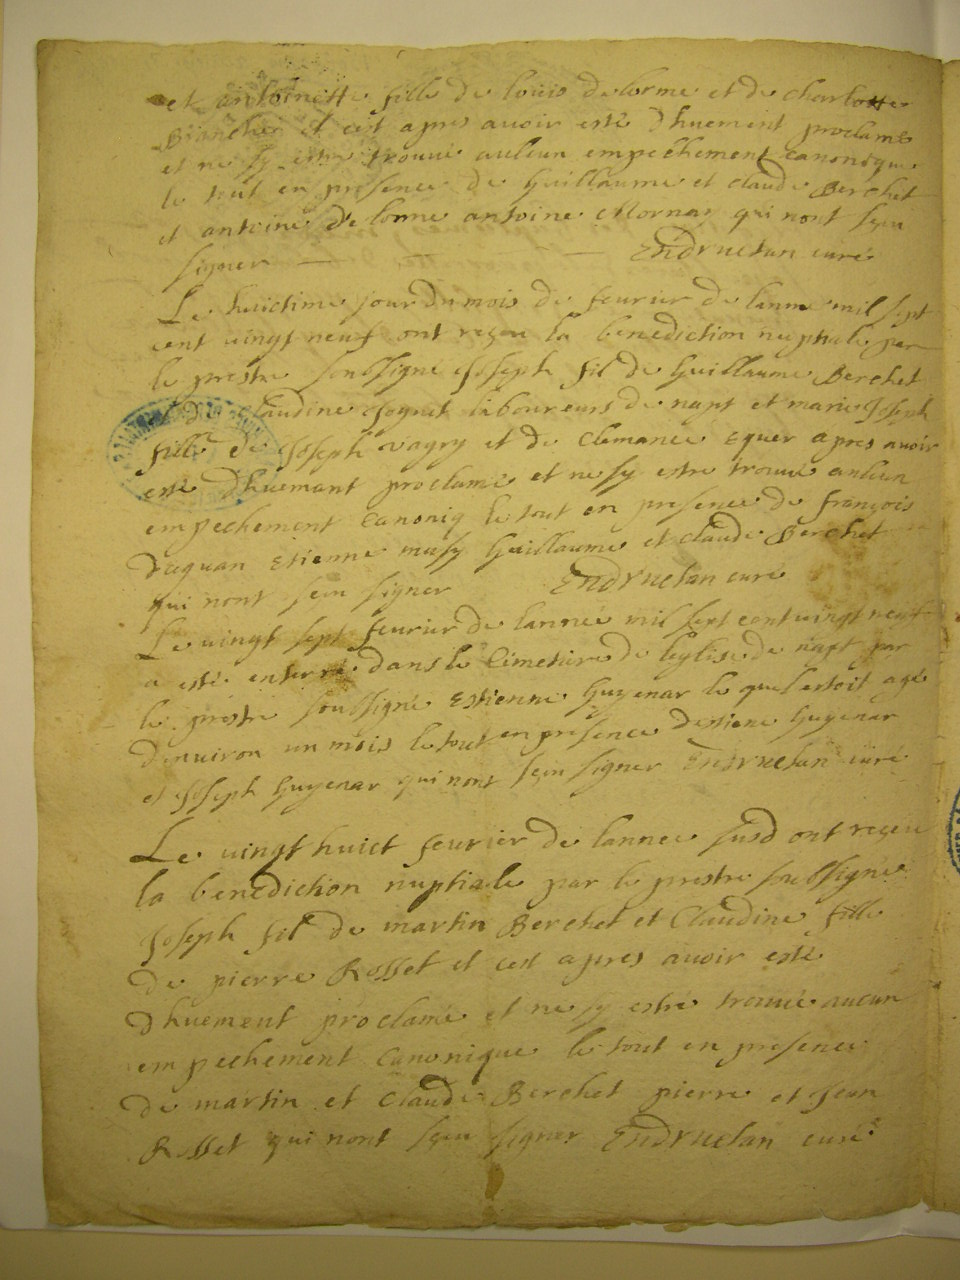 et antoinette fille de louis delorme et de charlotte
Bianche et cest apres avoir esté dhuement proclamé
et ne sy estre trouvé aulcun empechement canonique
le tout en presence de Guillaume et claude Berchet
et antoine de lorme antoine Mornay qui nont sçeu
signer Endruelan curé
Le huictime jour du mois de feurier de lanne mil sept
cent vingt neuf ont reçeu la benediction nuptiale par
le prestre soubsigne Joseph fil de Guillaume Berchet
de Claudine Joqnet laboureurs de napt et marie Joseph
fille de Joseph vagry et de clemance Equer apres avoir
esté dhuemant proclame et ne sy estre trouvé aulcun
empechement canoniq le tout en presence de françois
Etienne musy Guillaume et claude Berchet
qui nont sceu signer Endruelan curé
Le vingt sept feurier de lannée mil sept cent vingt neuf
a esté enterré dans le Cimetiere de leglise de napt par
le prestre soubsigné Estienne Guyenar le quel estoit agé
denviron un mois le tout en presence destiene Guyenar
et Joseph Guyenar qui nont sçeu signer Endruelan curé
Le vingt huict feurier de lannee susd ont reçeu
la benediction nuptiale par le prestre subsigné
Joseph fil de martin Berchet et Claudine fille
de pierre Rosset et cest apres avoir esté
dhuement proclamé et ne sy estre trouvé aucun
empechement Canonique le tout en presence
de martin et claude Berchet pierre et Jean
Rosset qui nont sçeu signer Endruelan curé